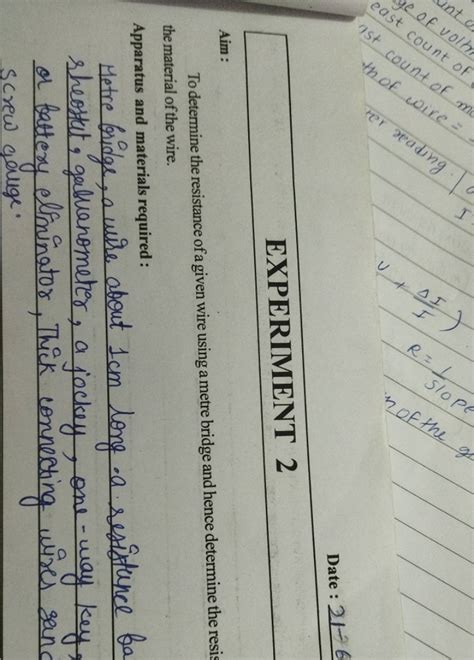 Date : 21-6
EXPERIMENT 2
Aim :
To determine the resistance of a given wire using a metre bridge and hence determine the resis
the material of the wire.
Apparatus and materials required :
Metre bridge, a wire about 1cm long a resistance ba
rheostat, galvanometer, a jockey, one-way key,
or battery eliminator, Thick connecting wires sand
screw gauge.
east count of
ge of volt
st count of
th of wire =
reading
I
V + ΔI
I )
R = 1
Slope
of the